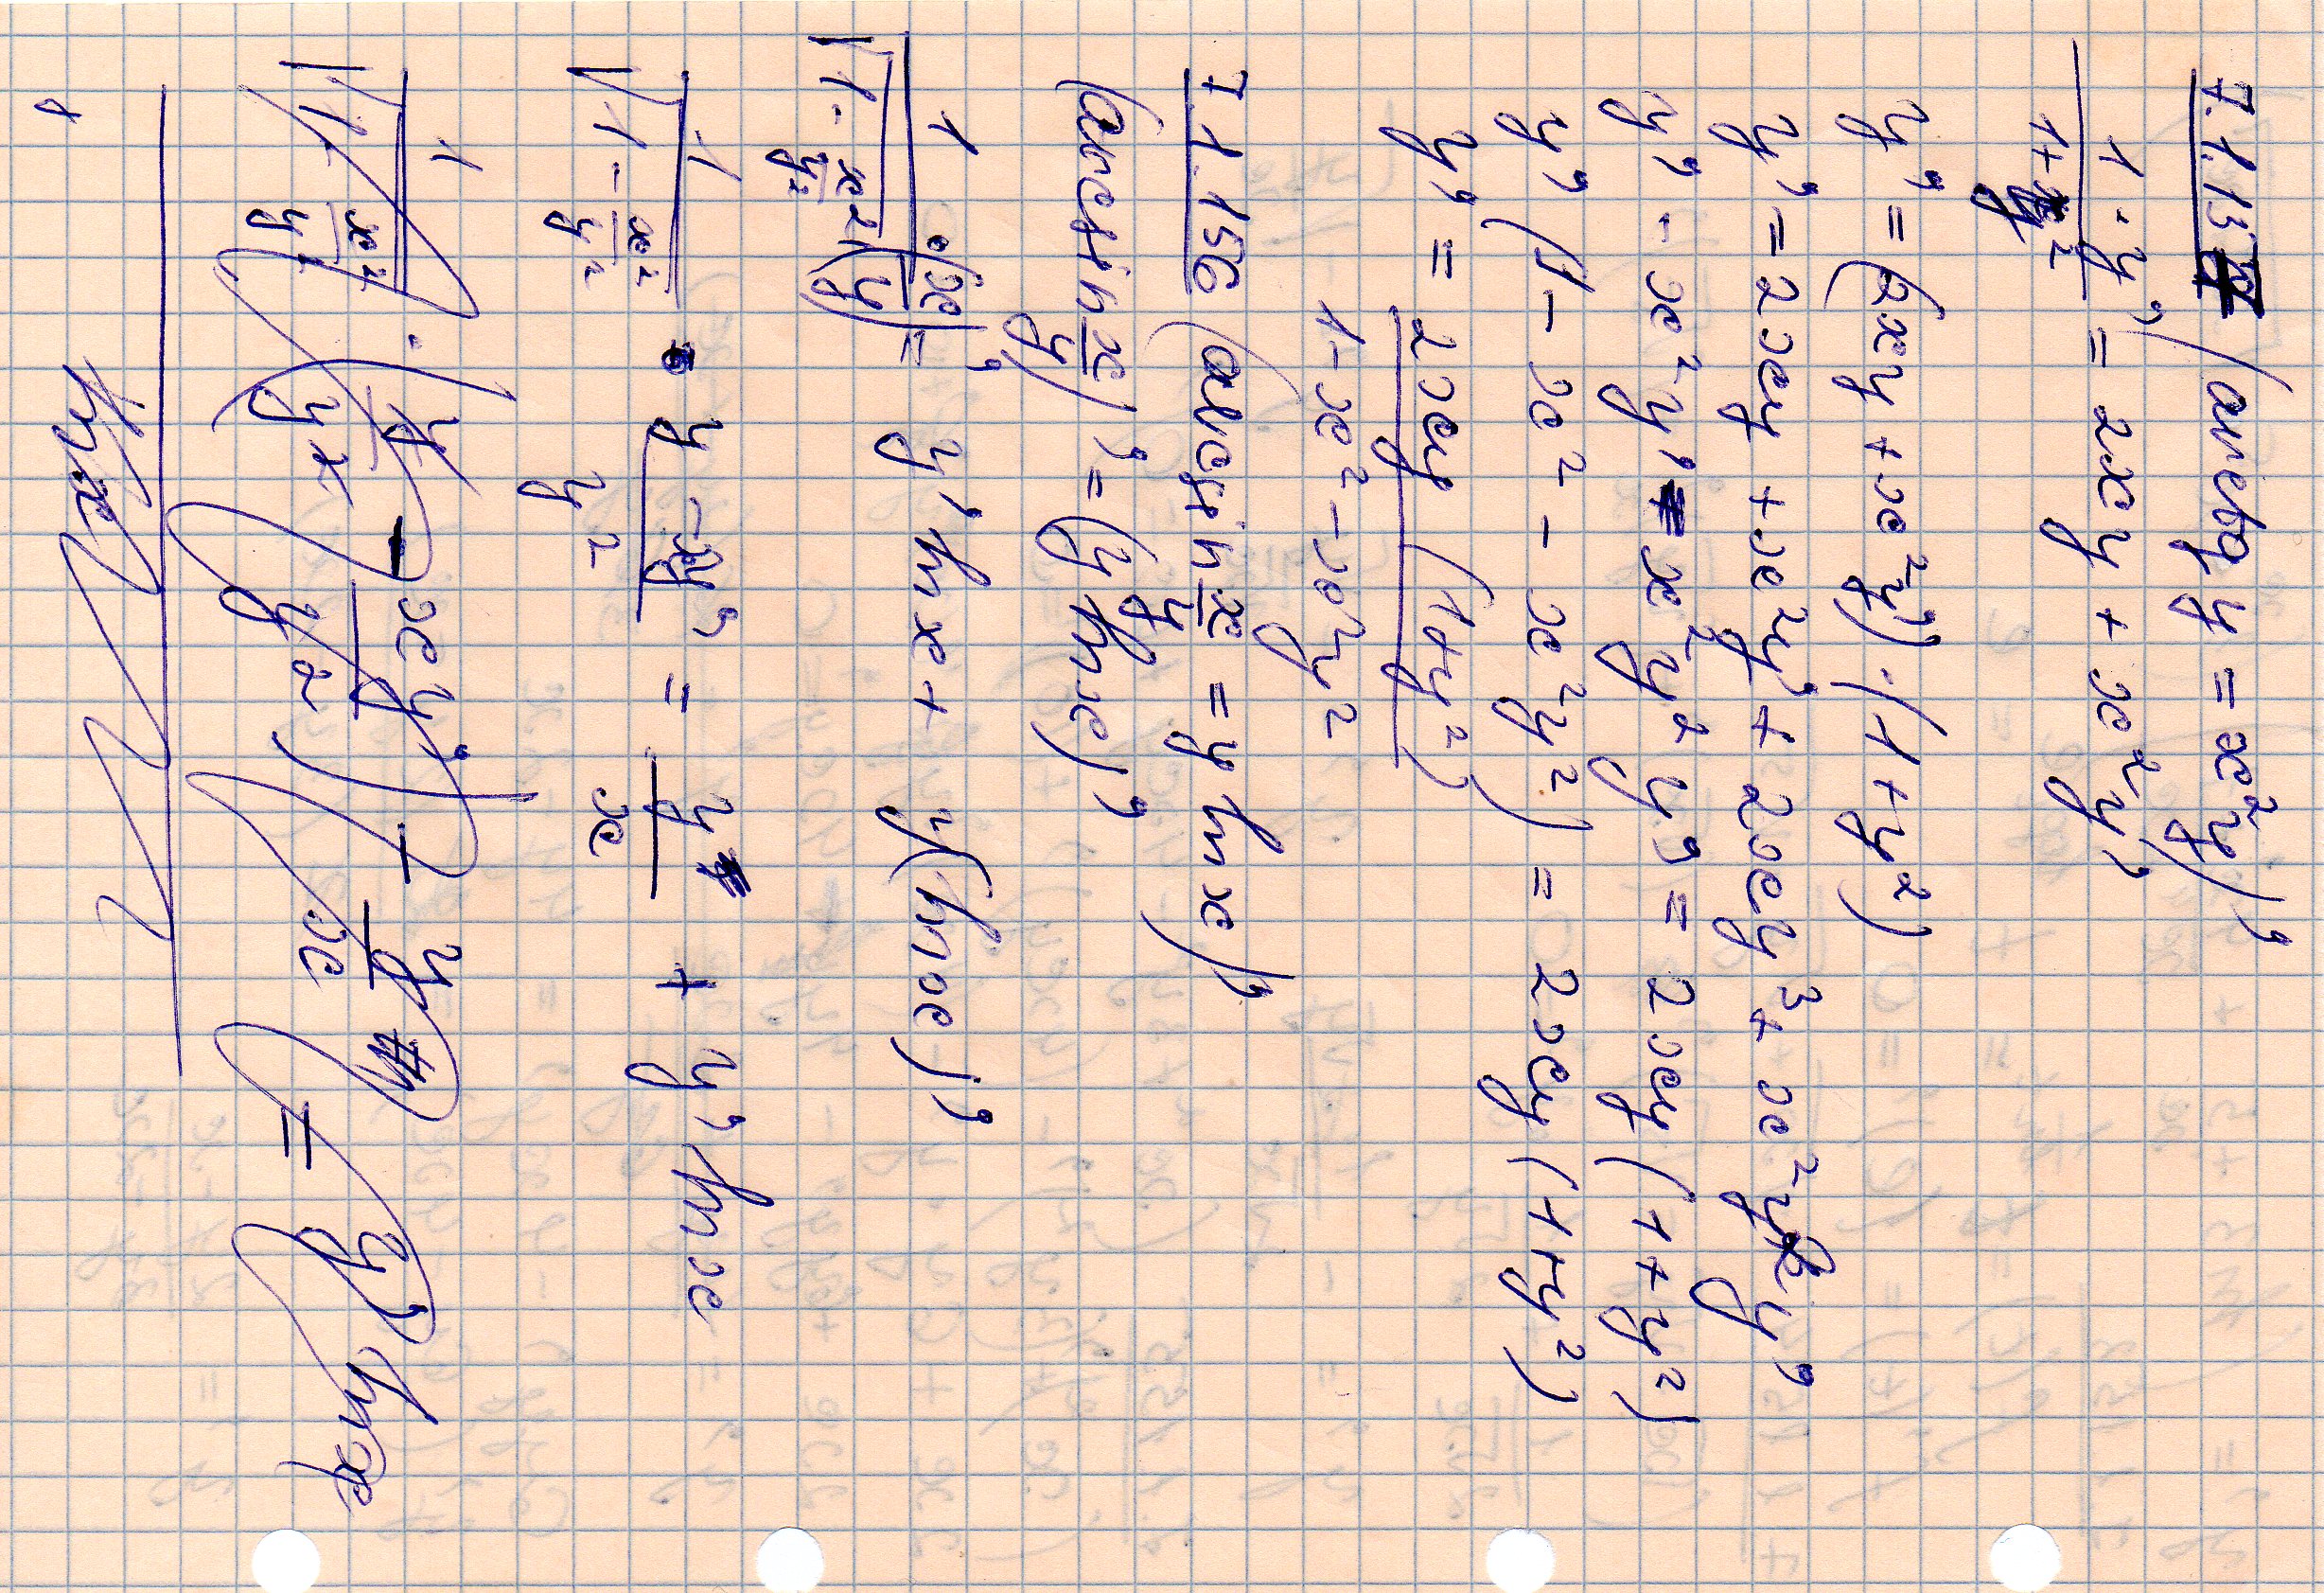 7.1.15 (arctg y = x²y)'
1·y'/(1+y²) = 2xy + x²y'
y' = (2xy + x²y')·(1+y²)
y' = 2xy + x²y' + 2xy³ + x²y²y'
y' - x²y' - x²y²y' = 2xy(1+y²)
y'(1 - x² - x²y²) = 2xy(1+y²)
y' = 2xy(1+y²)/(1-x²-x²y²)
7.1.156 (arcsin x/y = y ln x)'
(arcsin x/y)' = (y ln x)'
1/√(1 - x²/y²) · (x/y)' = y' ln x + y(ln x)'
1/√(1 - x²/y²) · (y - xy')/y² = y/x + y' ln x
1/√(1 - x²/y²) · (y/y² - xy'/y²) - y/x = y' ln x
ln x